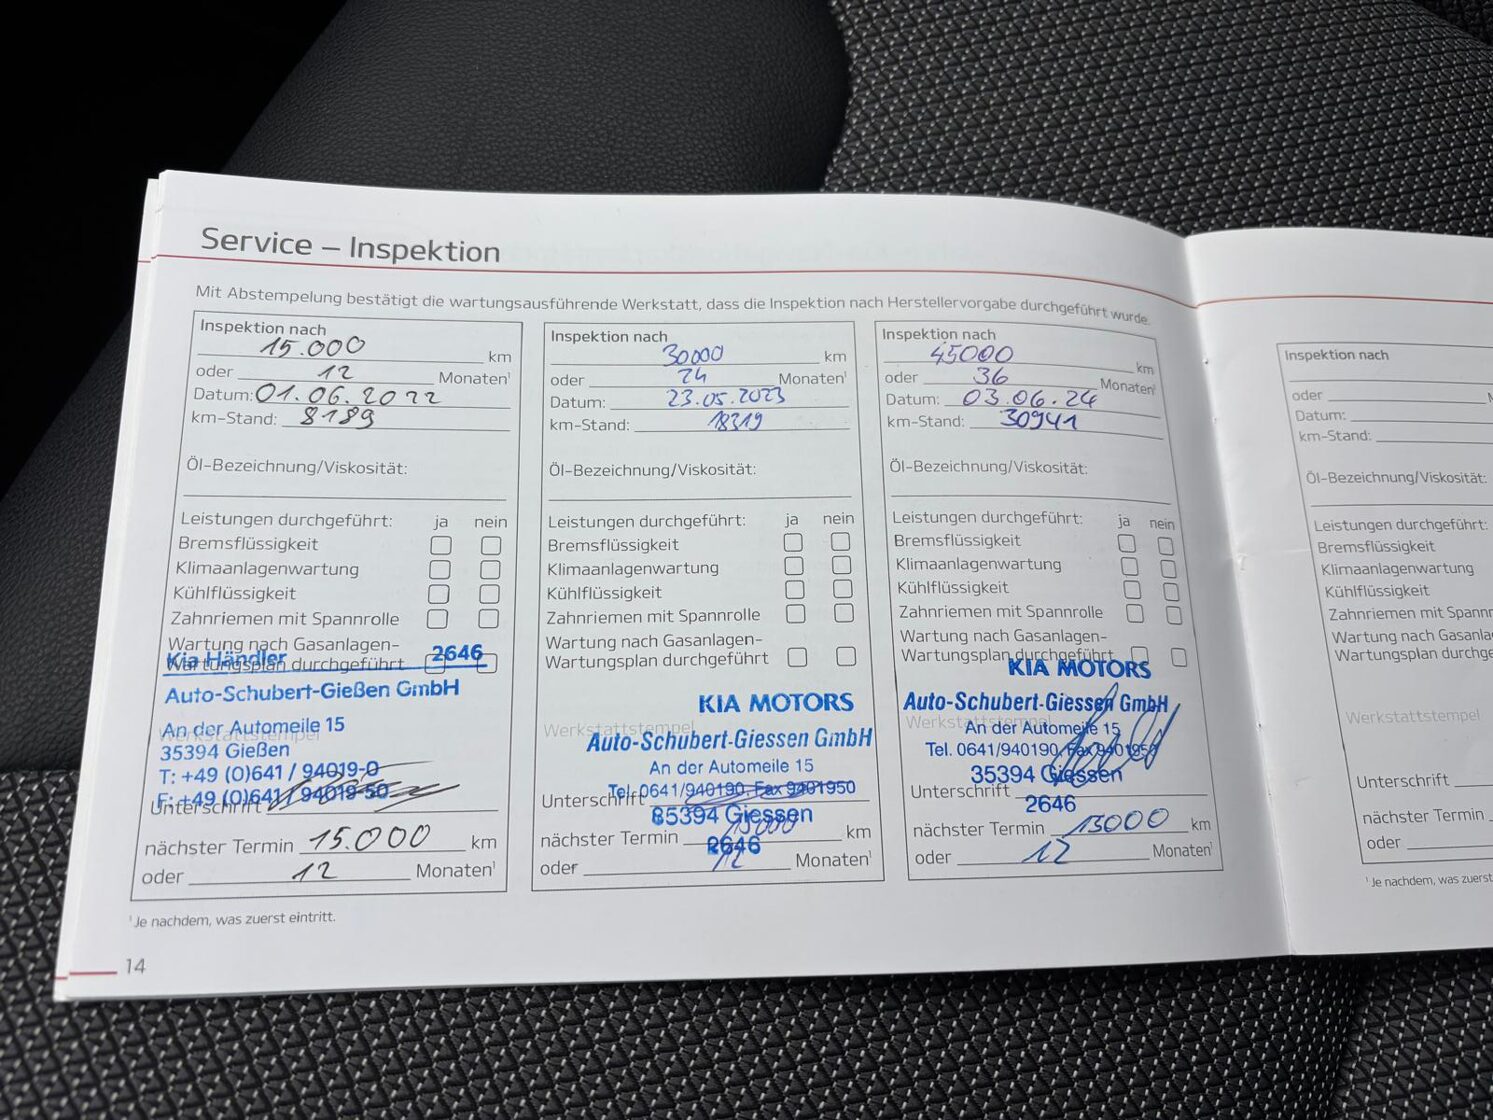 Service – Inspektion
Mit Abstempelung bestätigt die wartungsausführende Werkstatt, dass die Inspektion nach Herstellervorgabe durchgeführt wurde.
Inspektion nach
15.000 km
oder 12 Monaten¹
Datum: 01.06.2022
km-Stand: 8189
Öl-Bezeichnung/Viskosität:
Leistungen durchgeführt: ja nein
Bremsflüssigkeit
Klimaanlagenwartung
Kühlflüssigkeit
Zahnriemen mit Spannrolle
Wartung nach Gasanlagen-
Wartungsplan durchgeführt
Kia Händler 2646
Auto-Schubert-Gießen GmbH
An der Automeile 15
Werkstattstempel
35394 Gießen
T: +49 (0)641 / 94019-0
F: +49 (0)641 / 94019-50
Unterschrift
nächster Termin 15.000 km
oder 12 Monaten¹
Inspektion nach
30000 km
oder 24 Monaten¹
Datum: 23.05.2023
km-Stand: 18319
Öl-Bezeichnung/Viskosität:
Leistungen durchgeführt: ja nein
Bremsflüssigkeit
Klimaanlagenwartung
Kühlflüssigkeit
Zahnriemen mit Spannrolle
Wartung nach Gasanlagen-
Wartungsplan durchgeführt
KIA MOTORS
Werkstattstempel
Auto-Schubert-Giessen GmbH
An der Automeile 15
Tel. 0641/940190, Fax 9401950
Unterschrift
35394 Giessen
nächster Termin 15000 km
2646
oder 12 Monaten¹
Inspektion nach
45000 km
oder 36 Monaten¹
Datum: 03.06.24
km-Stand: 30941
Öl-Bezeichnung/Viskosität:
Leistungen durchgeführt: ja nein
Bremsflüssigkeit
Klimaanlagenwartung
Kühlflüssigkeit
Zahnriemen mit Spannrolle
Wartung nach Gasanlagen-
Wartungsplan durchgeführt
KIA MOTORS
Auto-Schubert-Giessen GmbH
Werkstattstempel
An der Automeile 15
Tel. 0641/940190, Fax 9401950
35394 Giessen
Unterschrift
2646
nächster Termin 15000 km
oder 12 Monaten¹
¹ Je nachdem, was zuerst eintritt.
14
Inspektion nach
oder
Datum:
km-Stand:
Öl-Bezeichnung/Viskosität:
Leistungen durchgeführt:
Bremsflüssigkeit
Klimaanlagenwartung
Kühlflüssigkeit
Zahnriemen mit Spannr
Wartung nach Gasanla
Wartungsplan durchge
Werkstattstempel
Unterschrift
nächster Termin
oder
¹ Je nachdem, was zuerst